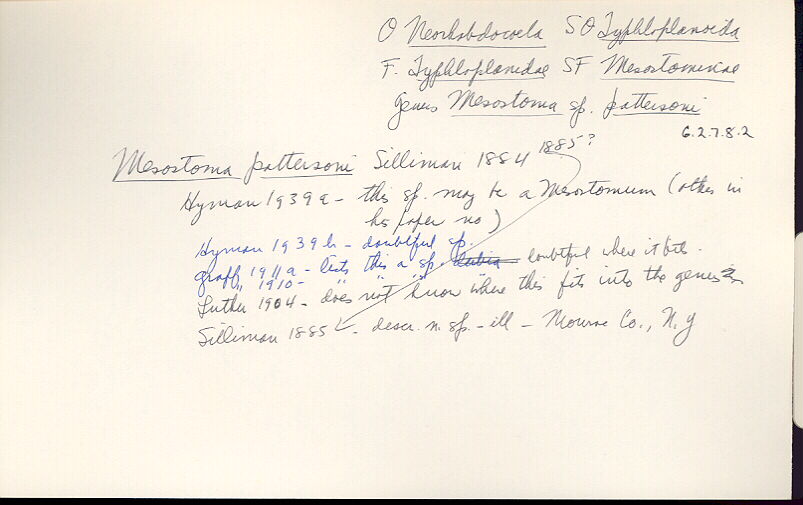 O Neorhabdocoela SO Typhloplanoida
F. Typhloplanidae SF Mesostominae
Genus Mesostoma sp. pattersoni
6.2.7.8.2
Mesostoma pattersoni Silliman 1884 1885?
Hyman 1939a - this sp. may be a Mesostomum (others in
his paper no)
Hyman 1939b - doubtful sp.
Graff 1911a - lists this a sp. dubia doubtful where it fits.
" 1910 - " " "
Luther 1904 - does not know where this fits into the genus
Silliman 1885 - descr. n. sp. - ill - Monroe Co., N.Y